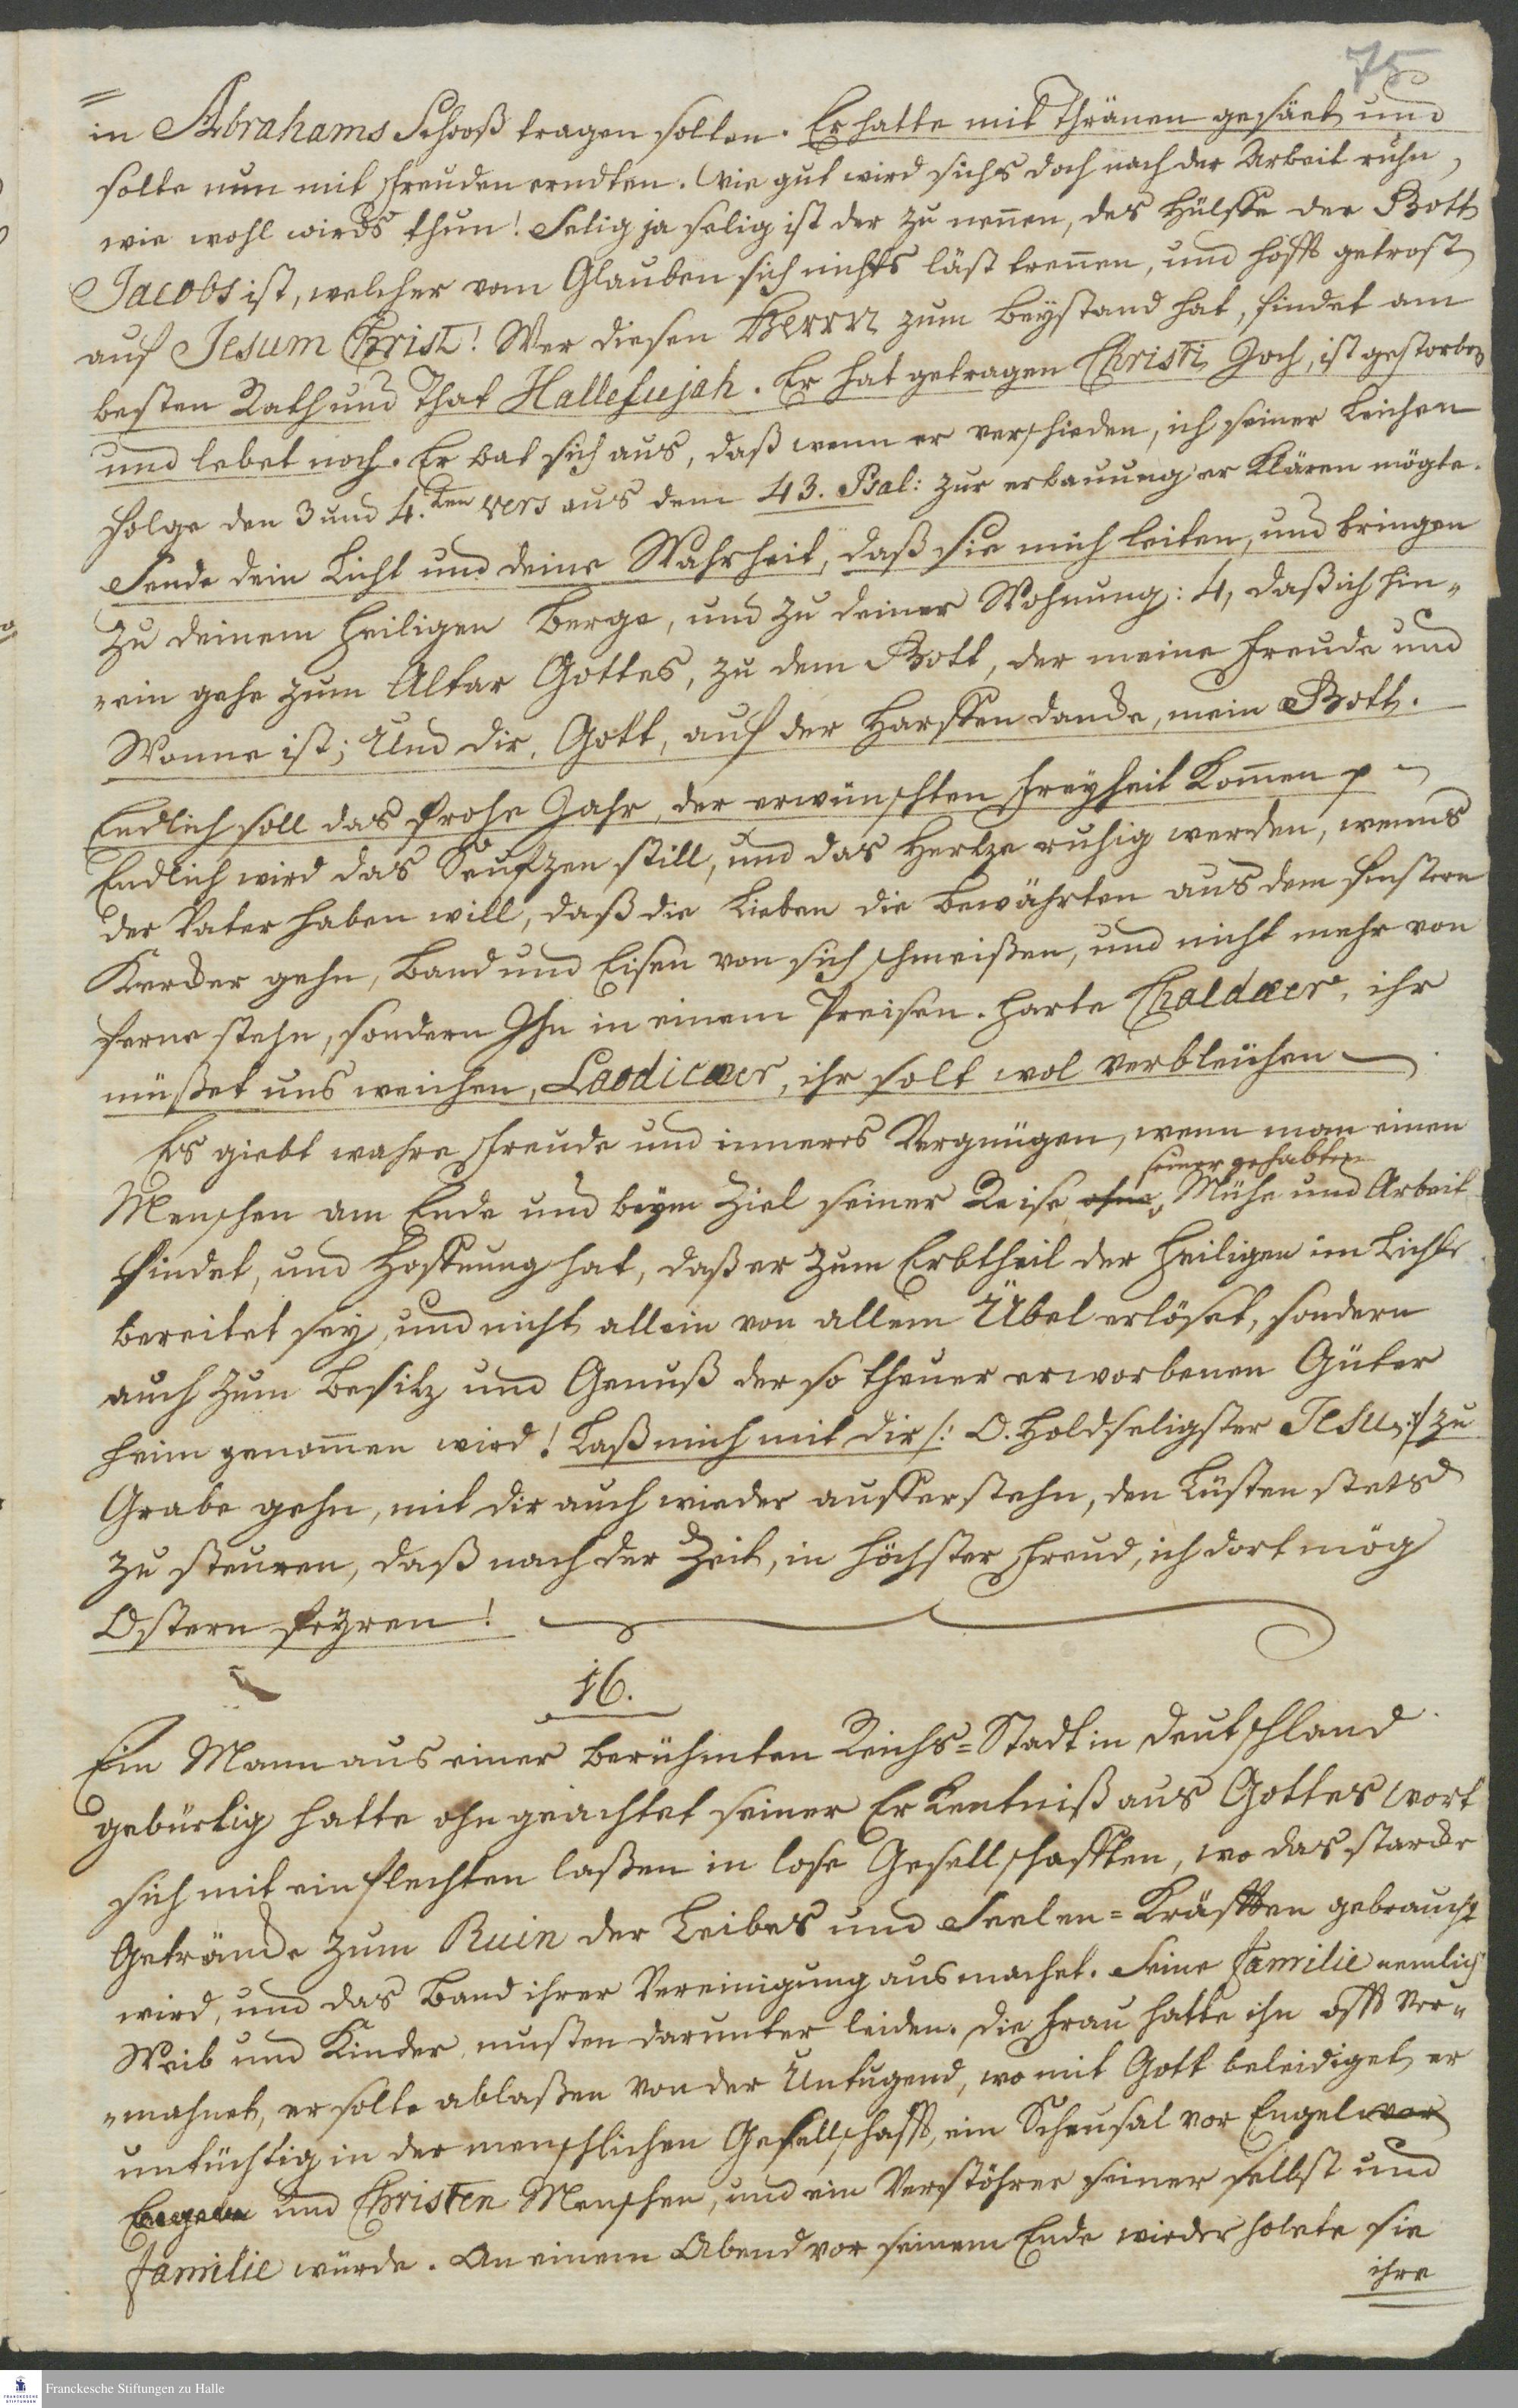 75
in Abrahams Schooß tragen solten. Er hatte mit Thränen gesäet und
solte nun mit Freuden erndten. Wie gut wird sichs doch nach der Arbeit ruhn,
wie wohl wirds thun! Selig ja selig ist der zu nennen, des Hülffe der Gott
Jacobs ist, welcher vom Glauben sich nichts läst trennen, und hofft getrost
auf Jesum Christ! Wer diesen Herrn zum Beystand hat, findet am
besten Rath und That Hallelujah. Er hat getragen Christi Joch, ist gestorben
und lebet noch. Er bat sich aus, daß wenn er verschieden, ich seiner Leichen
folge den 3 und 4.ten vers aus dem 43. Psal: zur erbauung erklären mögte.
Sende dein Licht und deine Wahrheit, daß sie mich leiten, und bringen
zu deinem heiligen Berge, und zu deiner Wohnung: 4, daß ich hin-
-ein gehe zum Altar Gottes, zu dem Gott, der meine Freude und
Wonne ist; Und dir, Gott, auf der Harffen dancke, mein Gott.
Endlich soll das frohe Jahr, der erwünschten Freyheit kommen p
Endlich wird das Seufzen still, und das Hertze ruhig werden, wenns
der Vater haben will, daß die Lieben die bewährten aus dem finstern
Kercker gehn, Band und Eisen von sich schmeißen, und nicht mehr von
ferne stehn, sondern Ihn in einem Preisen. Harte Chaldæer, ihr
müßet uns weichen, Laodicæer, ihr solt wol verbleichen
Es giebt wahre Freude und inneres Vergnügen, wenn man einen
seiner gehabten
Menschen am Ende und beym Ziel seiner Reise ohne Mühe und Arbeit
findet, und Hoffnung hat, daß er zum Erbtheil der Heiligen im Lichte
bereitet sey, und nicht allein von allem Übel erlöset, sondern
auch zum Besitz und Genuß der so theuer erworbenen Güter
heim genommen wird! Laß mich mit dir /: O. Holdseligster Jesu :/ zu
Grabe gehn, mit dir auch wieder aufferstehn, den Lüsten stets
zu steuren, daß nach der Zeit, in höchster Freud, ich dort mög
Ostern feyren!
16.
Ein Mann aus einer berühmten Reichs=Stadt in Deutschland
gebürtig hatte ohngeachtet seiner Erkentniß aus Gottes Wort
sich mit einflechten laßen in lose Gesellschafften, wo das starcke
Getränke zum Ruin der Leibes und Seelen=Kräfften gebraucht
wird, und das Band ihrer Vereinigung ausmachet. Seine Familie nemlich
Weib und Kinder mußten darunter leiden. Die Frau hatte ihn offt ver-
-mahnet, er solte ablaßen von der Untugend, womit Gott beleidiget er
untüchtig in der menschlichen Gesellschafft, ein Scheusal vor Engel vor
und Christen Menschen, und ein Verstöhrer seiner selbst und
Familie würde. An einem Abend vor seinem Ende wiederholete sie
ihre
Franckesche Stiftungen zu Halle